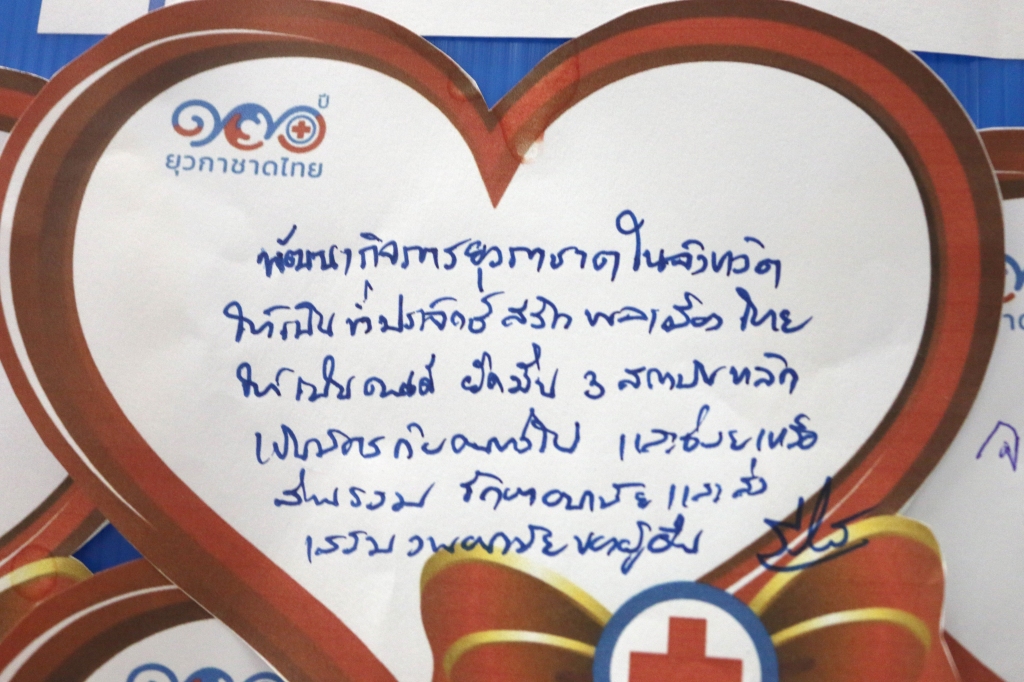 ๑๐๐ ปี
ยุวกาชาดไทย
พัฒนากิจการยุวกาชาดในจังหวัด
ให้เป็นที่ประจักษ์ สร้างพลเมืองไทย
ให้เป็นคนดี ยึดมั่น 3 สถาบันหลัก
เป็นมิตรกับคนทั่วไป และช่วยเหลือ
ส่วนรวม รักษาอนามัยและส่ง
เสริมอนามัยของผู้อื่น